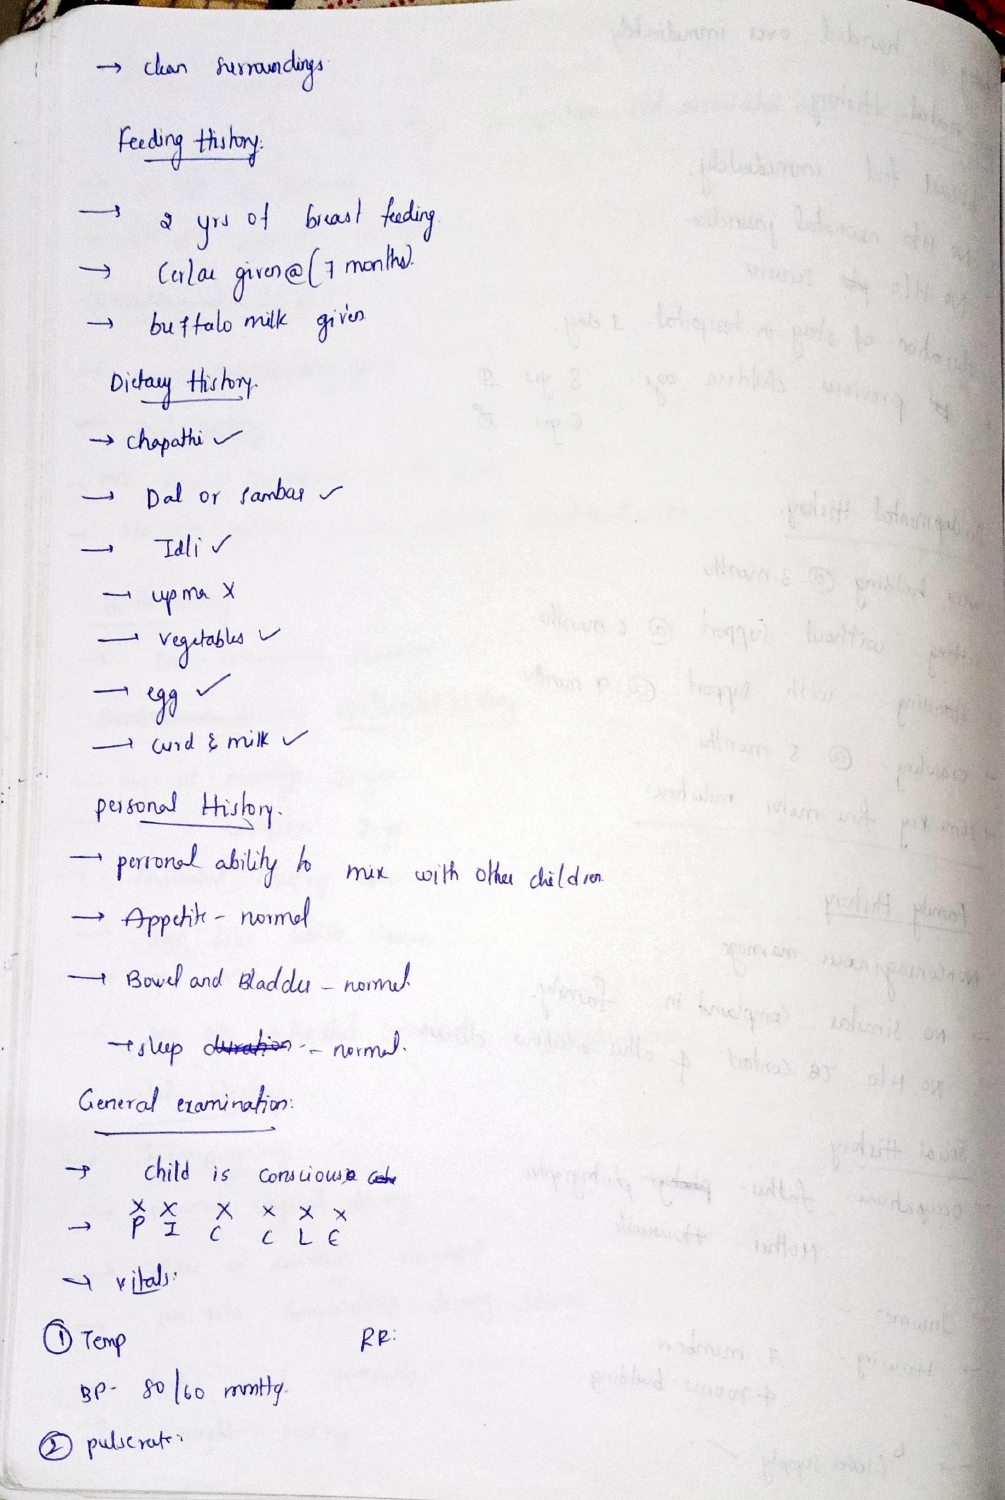 → clean surroundings
Feeding History:
→ 2 yrs of breast feeding.
→ Cerlac given @ (7 months).
→ buffalo milk given
Dietary History.
→ chapathi ✓
→ Dal or sambar ✓
→ Idli ✓
→ upma X
→ vegetables ✓
→ egg ✓
→ curd & milk ✓
personal History.
→ personal ability to mix with other children
→ Appetite - normal
→ Bowel and Bladder - normal.
→ sleep duration - normal.
General examination:
→ child is conscious
X X X X X X
→ P I C C L E
→ vitals:
① Temp RR:
BP- 80/60 mmHg.
② pulse rate: